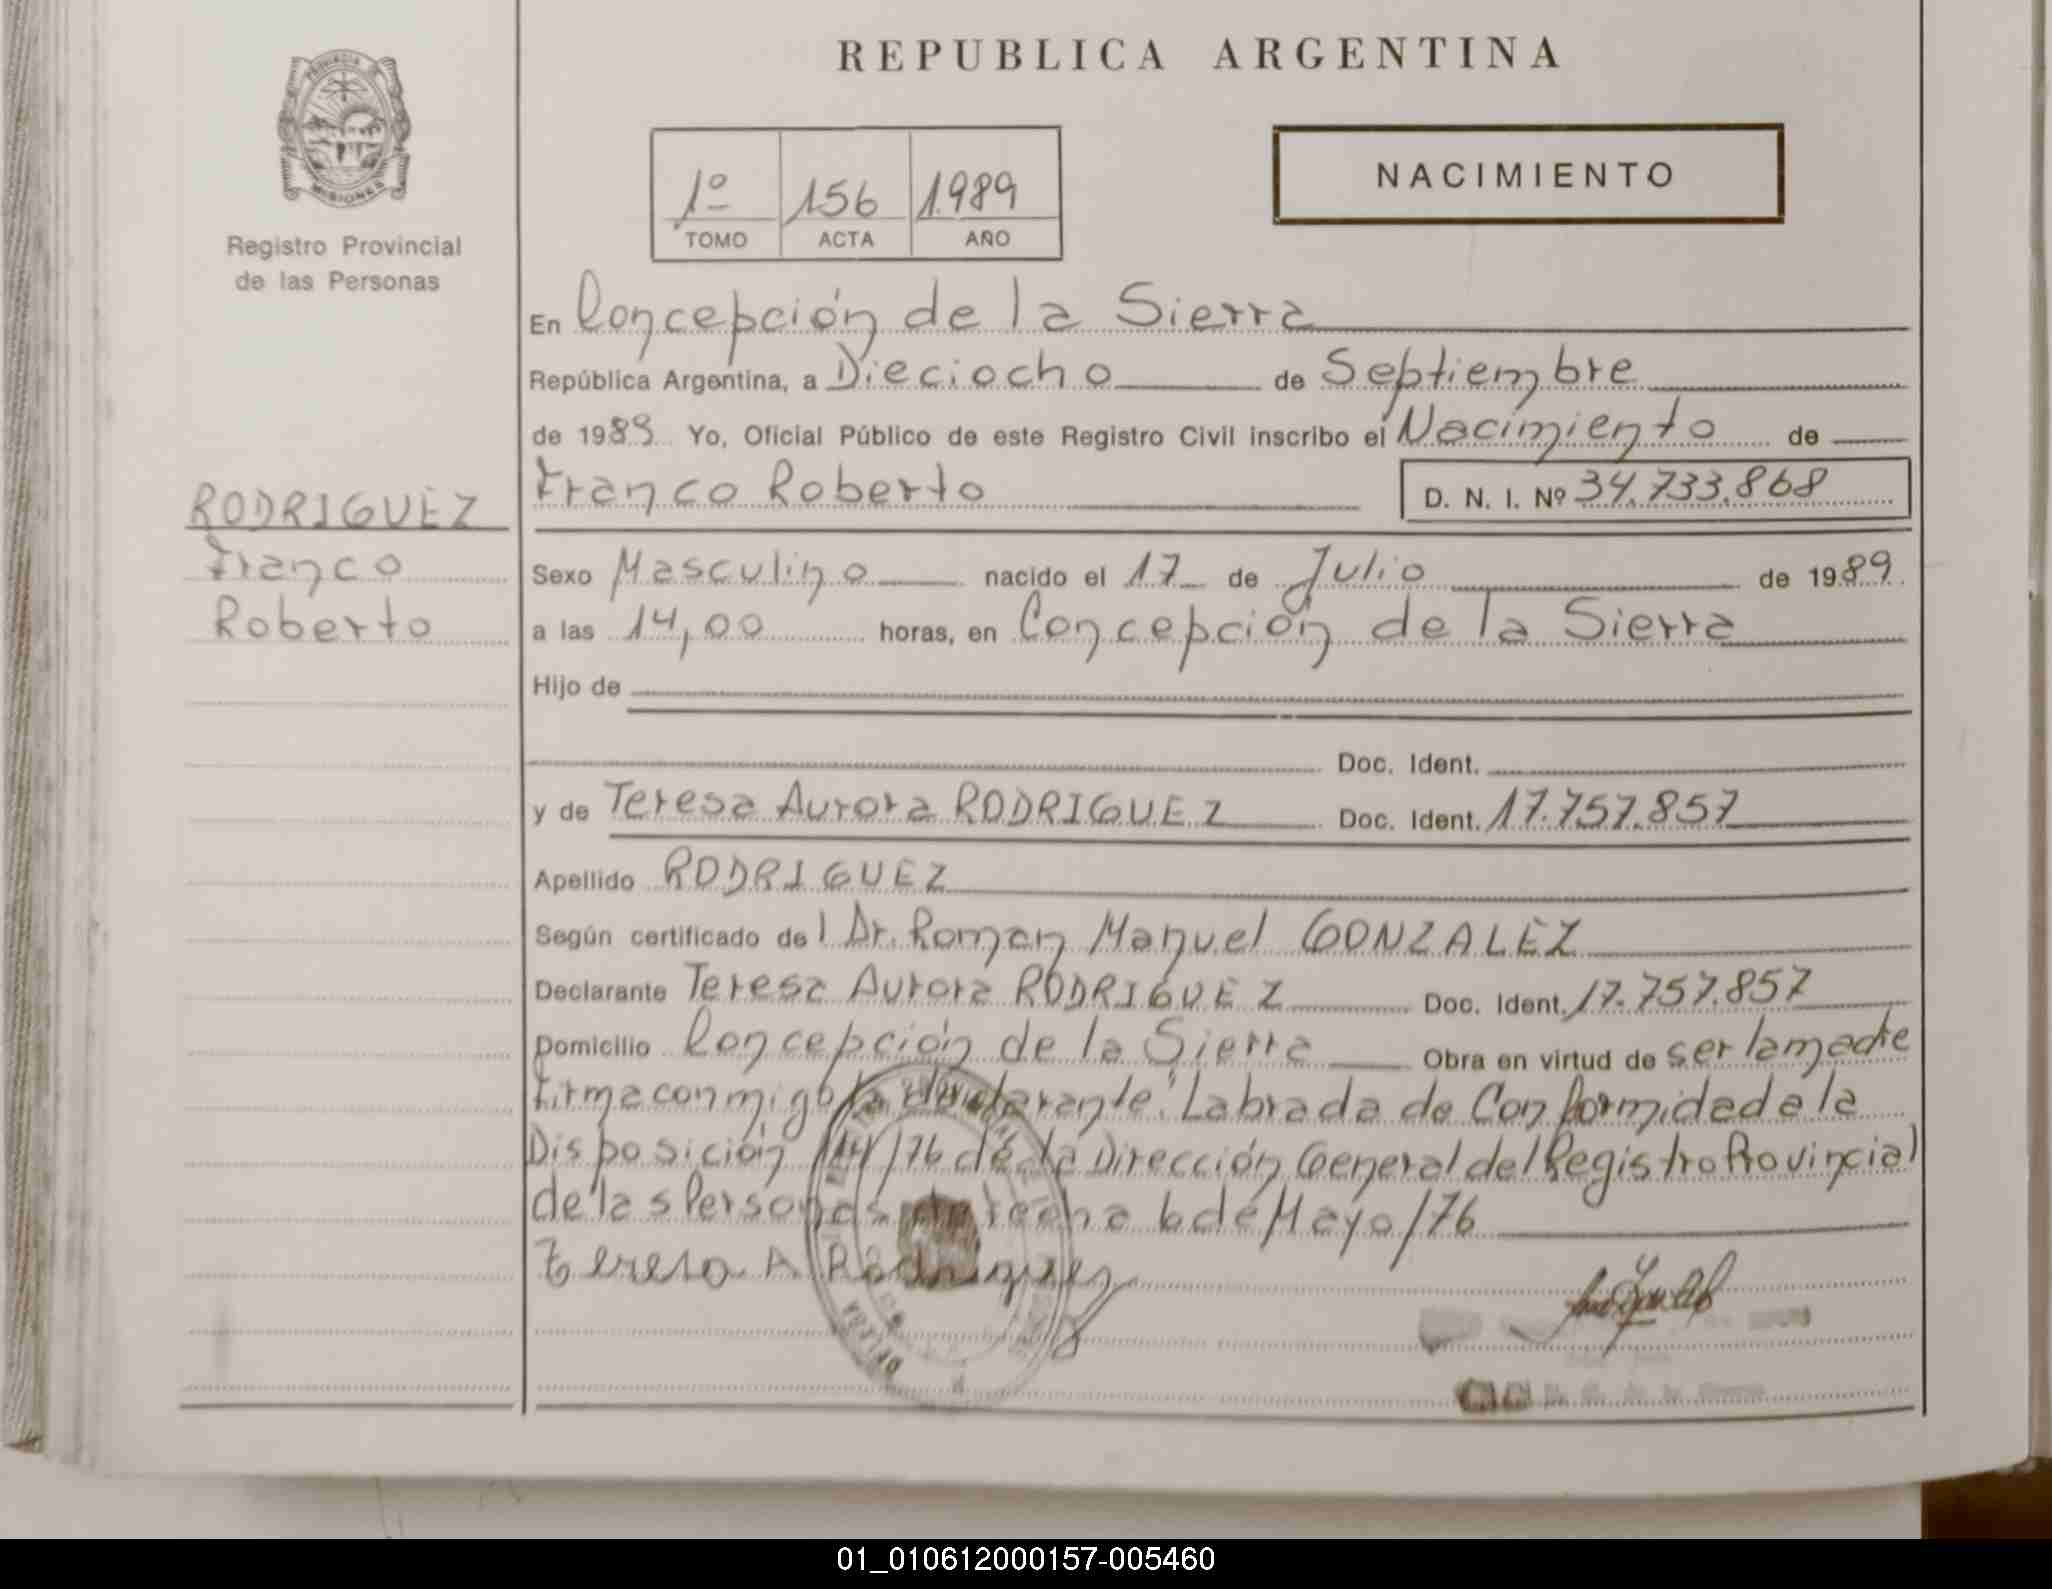 REPUBLICA ARGENTINA
PROVINCIA DE
MISIONES
Registro Provincial
de las Personas
1º 156 1.989
TOMO ACTA AÑO
NACIMIENTO
En Concepción de la Sierra
República Argentina, a Dieciocho de Septiembre
de 1989 Yo, Oficial Público de este Registro Civil inscribo el Nacimiento de
Franco Roberto D. N. I. Nº 34.733.868
RODRIGUEZ
Franco
Roberto
Sexo Masculino nacido el 17 de Julio de 1989
a las 14,00 horas, en Concepción de la Sierra
Hijo de
Doc. Ident.
y de Teresa Aurora RODRIGUEZ Doc. Ident. 17.757.857
Apellido RODRIGUEZ
Según certificado del Dr. Roman Manuel GONZALEZ
Declarante Teresa Aurora RODRIGUEZ Doc. Ident. 17.757.857
Domicilio Concepción de la Sierra Obra en virtud de ser la madre
firma conmigo la declarante. Labrada de Conformidad a la
Disposición 114/76 de la Dirección General del Registro Provincial
de las Personas de fecha 6 de Mayo/76
Teresa A Rodriguez
01_010612000157-005460